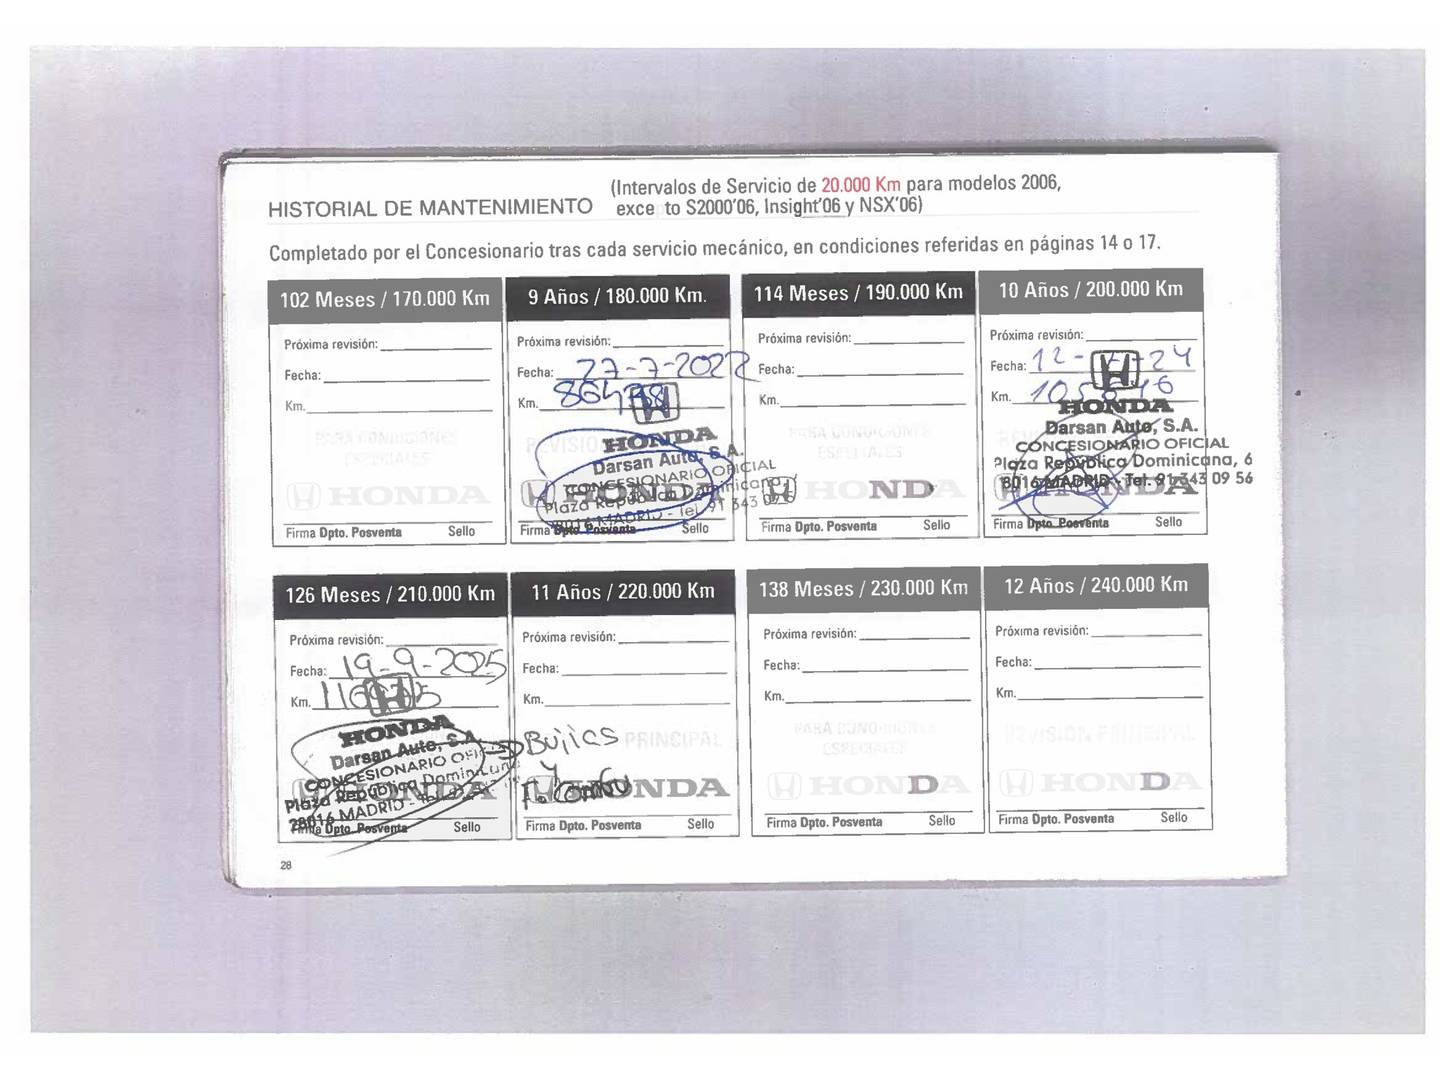 (Intervalos de Servicio de 20.000 Km para modelos 2006,
HISTORIAL DE MANTENIMIENTO exce to S2000'06, Insight'06 y NSX'06)
Completado por el Concesionario tras cada servicio mecánico, en condiciones referidas en páginas 14 o 17.
102 Meses / 170.000 Km
Próxima revisión:
Fecha:
Km.
PARA CONDICIONES
ESPECIALES
HONDA
Firma Dpto. Posventa Sello
9 Años / 180.000 Km.
Próxima revisión:
Fecha: 27-7-2022
Km.
HONDA
Darsan Auto, S.A.
CONCESIONARIO OFICIAL
Plaza República Dominicana,
28016 MADRID - Tel. 91 343 09 56
Firma Dpto. Posventa Sello
114 Meses / 190.000 Km
Próxima revisión:
Fecha:
Km.
PARA CONDICIONES
ESPECIALES
HONDA
Firma Dpto. Posventa Sello
10 Años / 200.000 Km
Próxima revisión:
Fecha: 12- -24
Km.
HONDA
Darsan Auto, S.A.
CONCESIONARIO OFICIAL
Plaza República Dominicana, 6
28016 MADRID - Tel. 91 343 09 56
Firma Dpto. Posventa Sello
126 Meses / 210.000 Km
Próxima revisión:
Fecha: 19-9-2025
Km.
HONDA
Darsan Auto, S.A.
CONCESIONARIO OFICIAL
Plaza República Dominicana
28016 MADRID - Tel.
Firma Dpto. Posventa Sello
11 Años / 220.000 Km
Próxima revisión:
Fecha:
Km.
Bujias PRINCIPAL
y
HONDA
Firma Dpto. Posventa Sello
138 Meses / 230.000 Km
Próxima revisión:
Fecha:
Km.
PARA CONDICIONES
ESPECIALES
HONDA
Firma Dpto. Posventa Sello
12 Años / 240.000 Km
Próxima revisión:
Fecha:
Km.
REVISION PRINCIPAL
HONDA
Firma Dpto. Posventa Sello
28